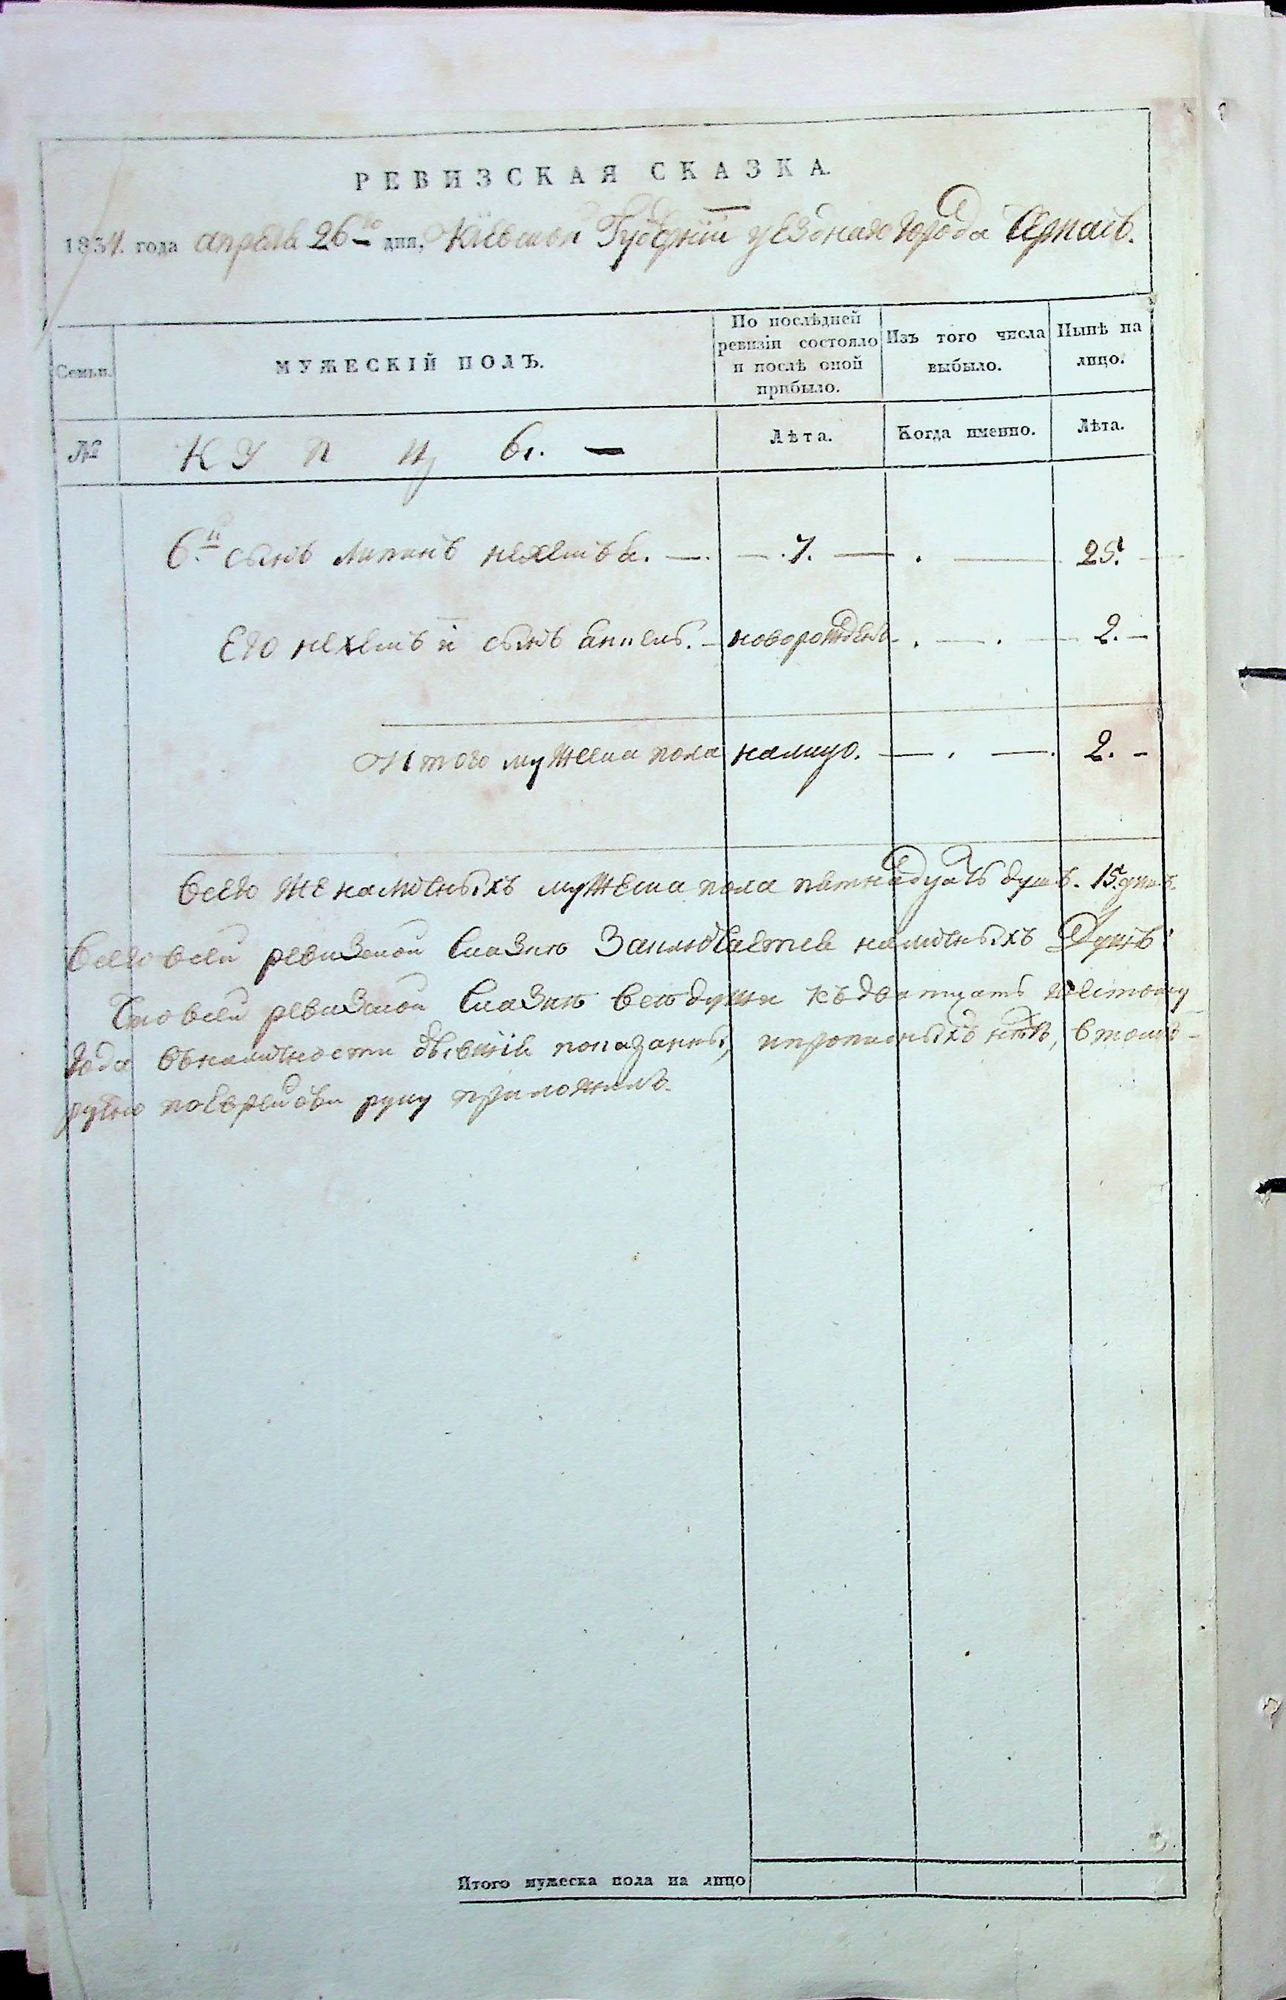 РЕВИЗСКАЯ СКАЗКА.
1834. года апреля 26го дня, Кіевской Губерніи уезднаго города Черкасъ.
Семьи.
МУЖЕСКІЙ ПОЛЪ.
По послѣдней ревизіи состояло и послѣ оной прибыло.
Изъ того числа выбыло.
Нынѣ на лицо.
№
Купцы. —
Лѣта.
Когда именно.
Лѣта.
6.й сынъ нехемъ — 7. — 25.
Его нехемъя сынъ — новорожден — 2. —
Итого мужеска пола налицо. — 2. —
Всего же наличныхъ мужеска пола пятнадцать душъ. 15 душъ.
Всего всей ревизской сказки Заключается наличныхъ Душъ
Что всей ревизской Сказки все души къ двадцать шестому
года въ наличности бывшіе показаны, и прописныхъ нетъ, в томъ
руку приложилъ.
Итого мужеска пола на лицо